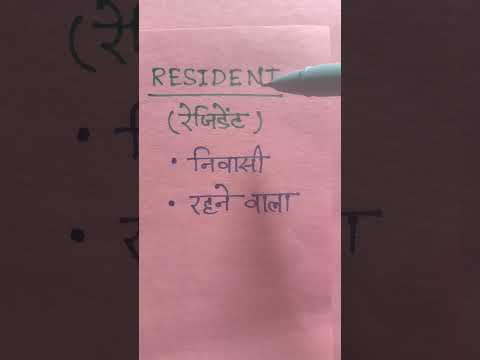 RESIDENT
(रेजिडेंट)
• निवासी
• रहने वाला